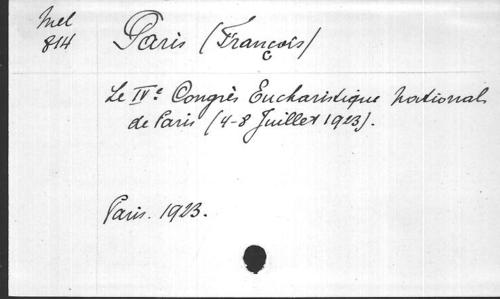 Mel
814
Paris (François)
Le IVe. Congrès Eucharistique national
de Paris (4-8 Juillet 1923).
Paris. 1923.